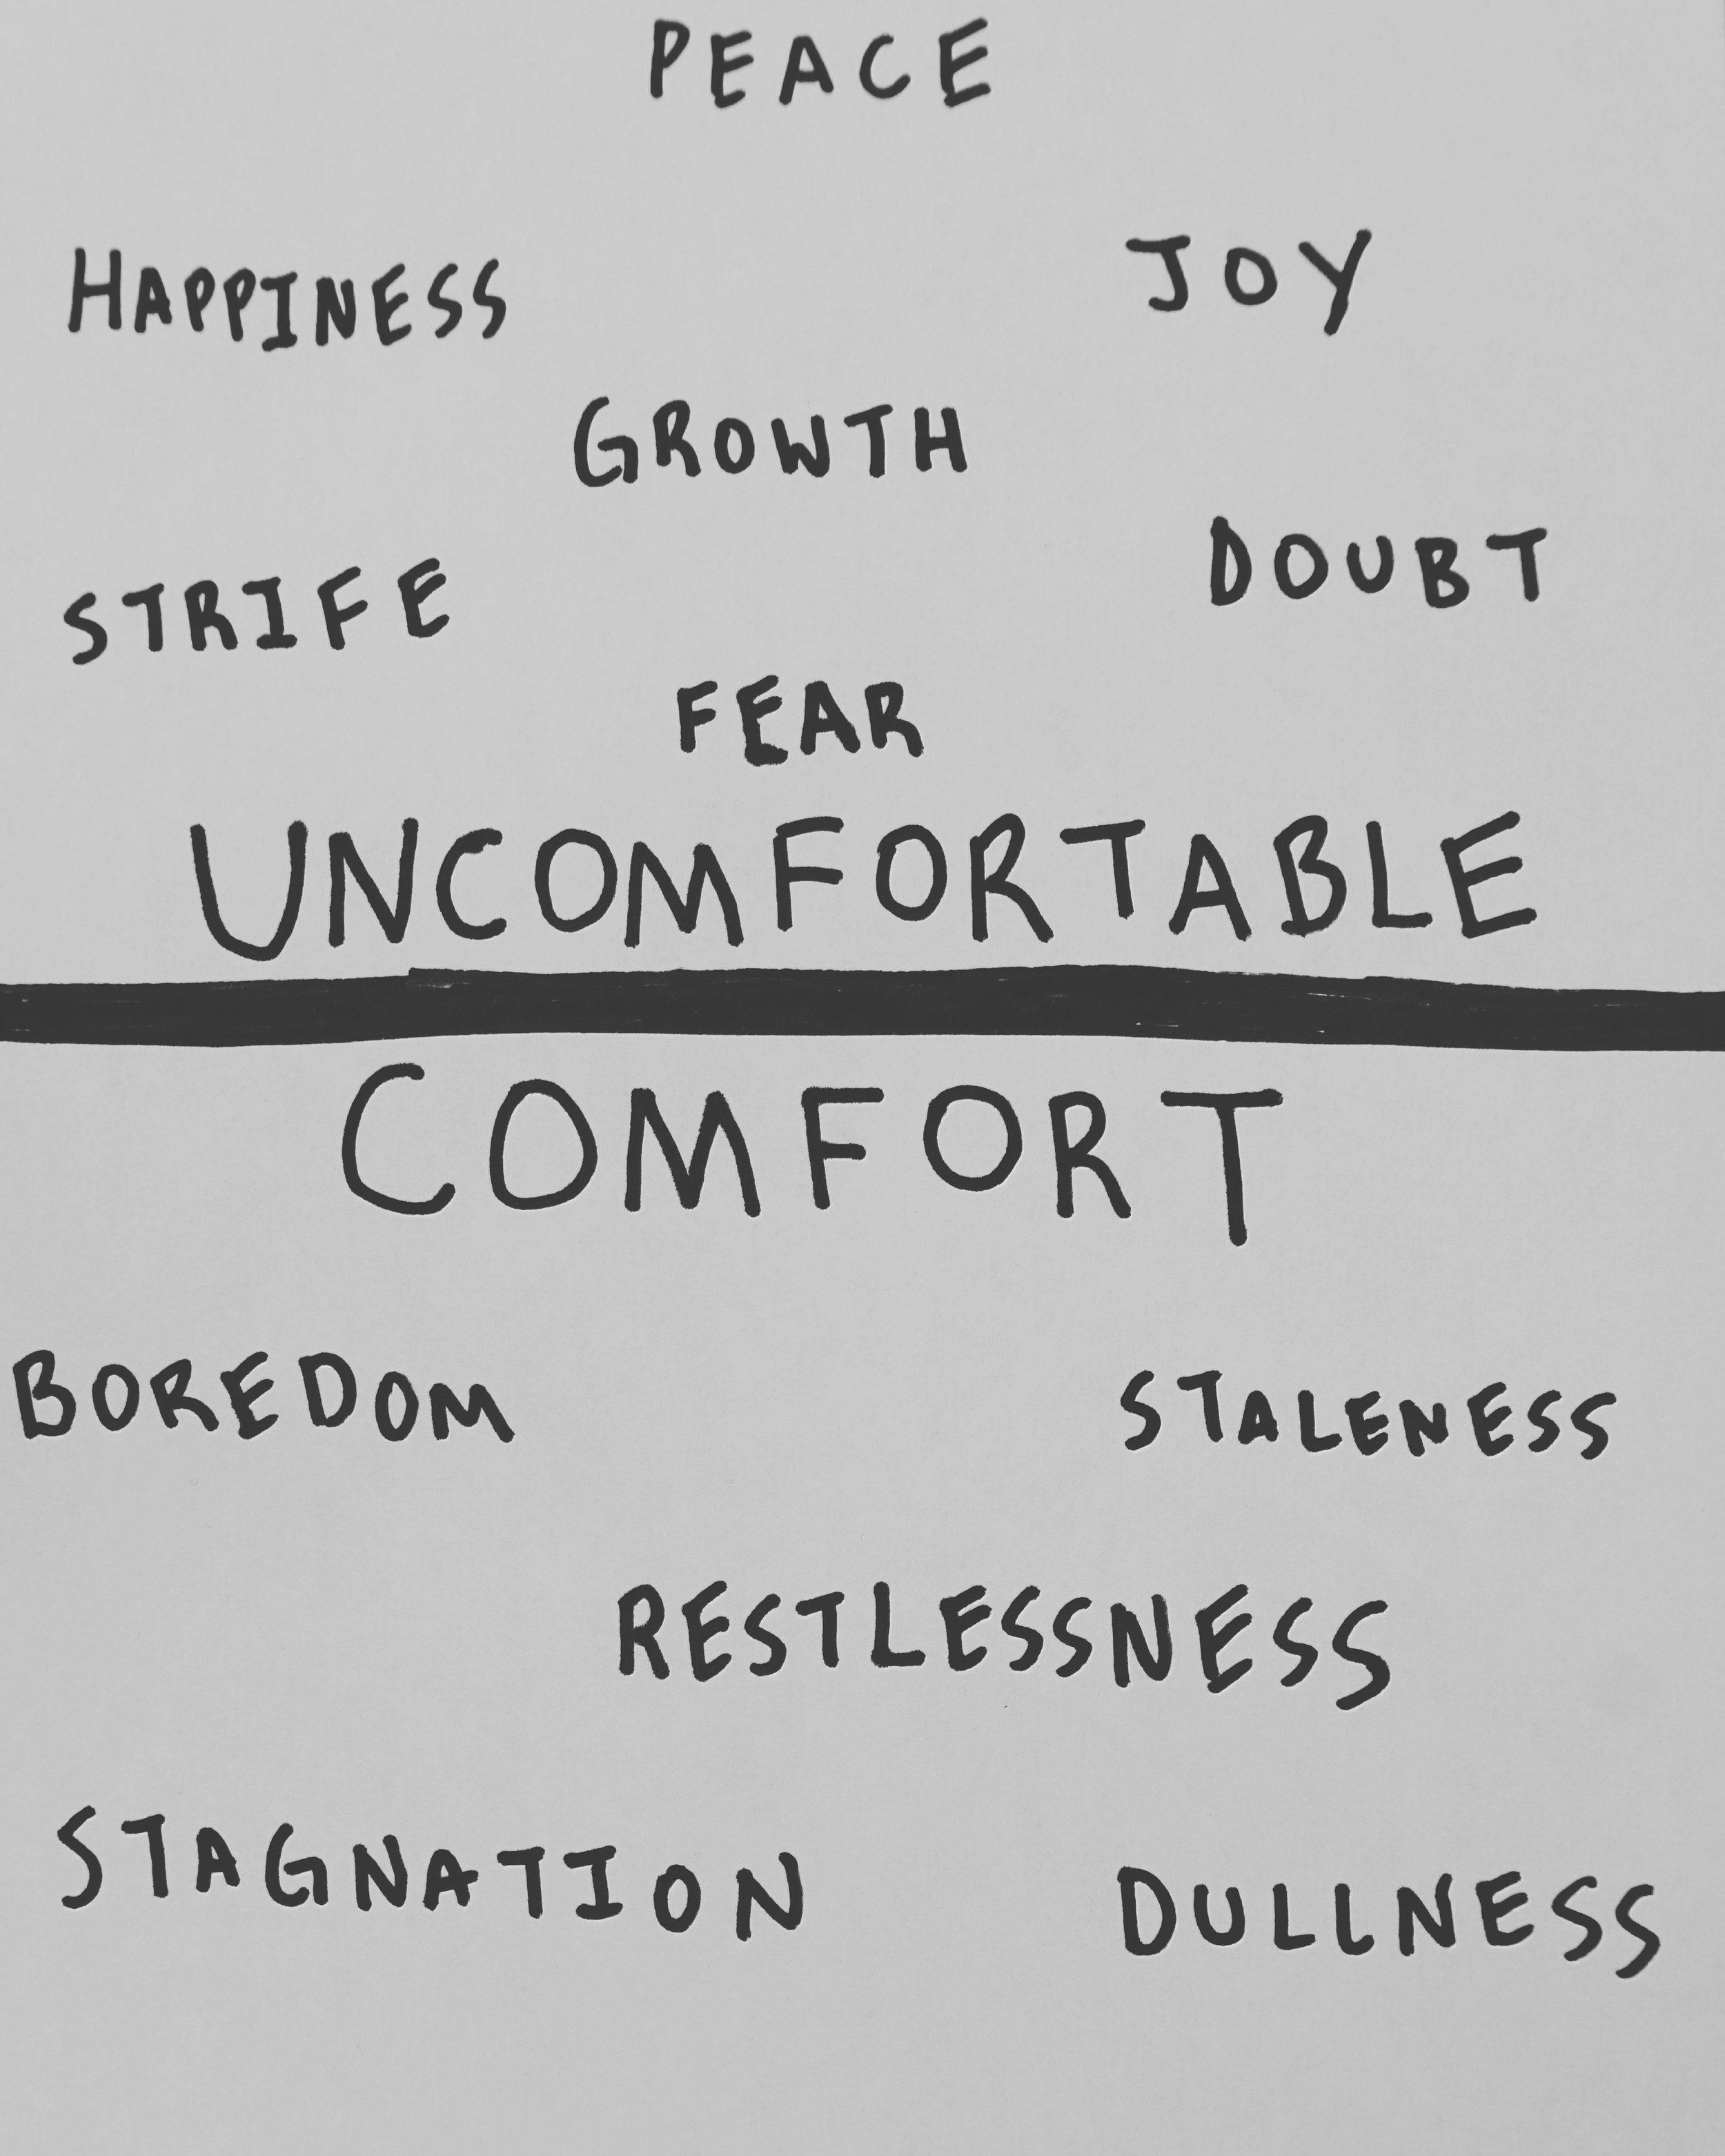 PEACE
HAPPINESS
JOY
GROWTH
DOUBT
STRIFE
FEAR
UNCOMFORTABLE
COMFORT
BOREDOM
STALENESS
RESTLESSNESS
STAGNATION
DULLNESS